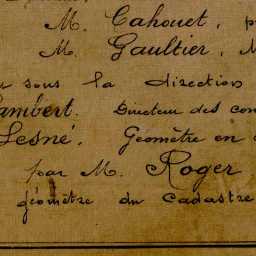 M. Cahouet, p
M. Gaultier, M
sous la direction
ambert. Directeur des con
Lesné. Géomètre en
par M. Roger
géomètre du Cadastre